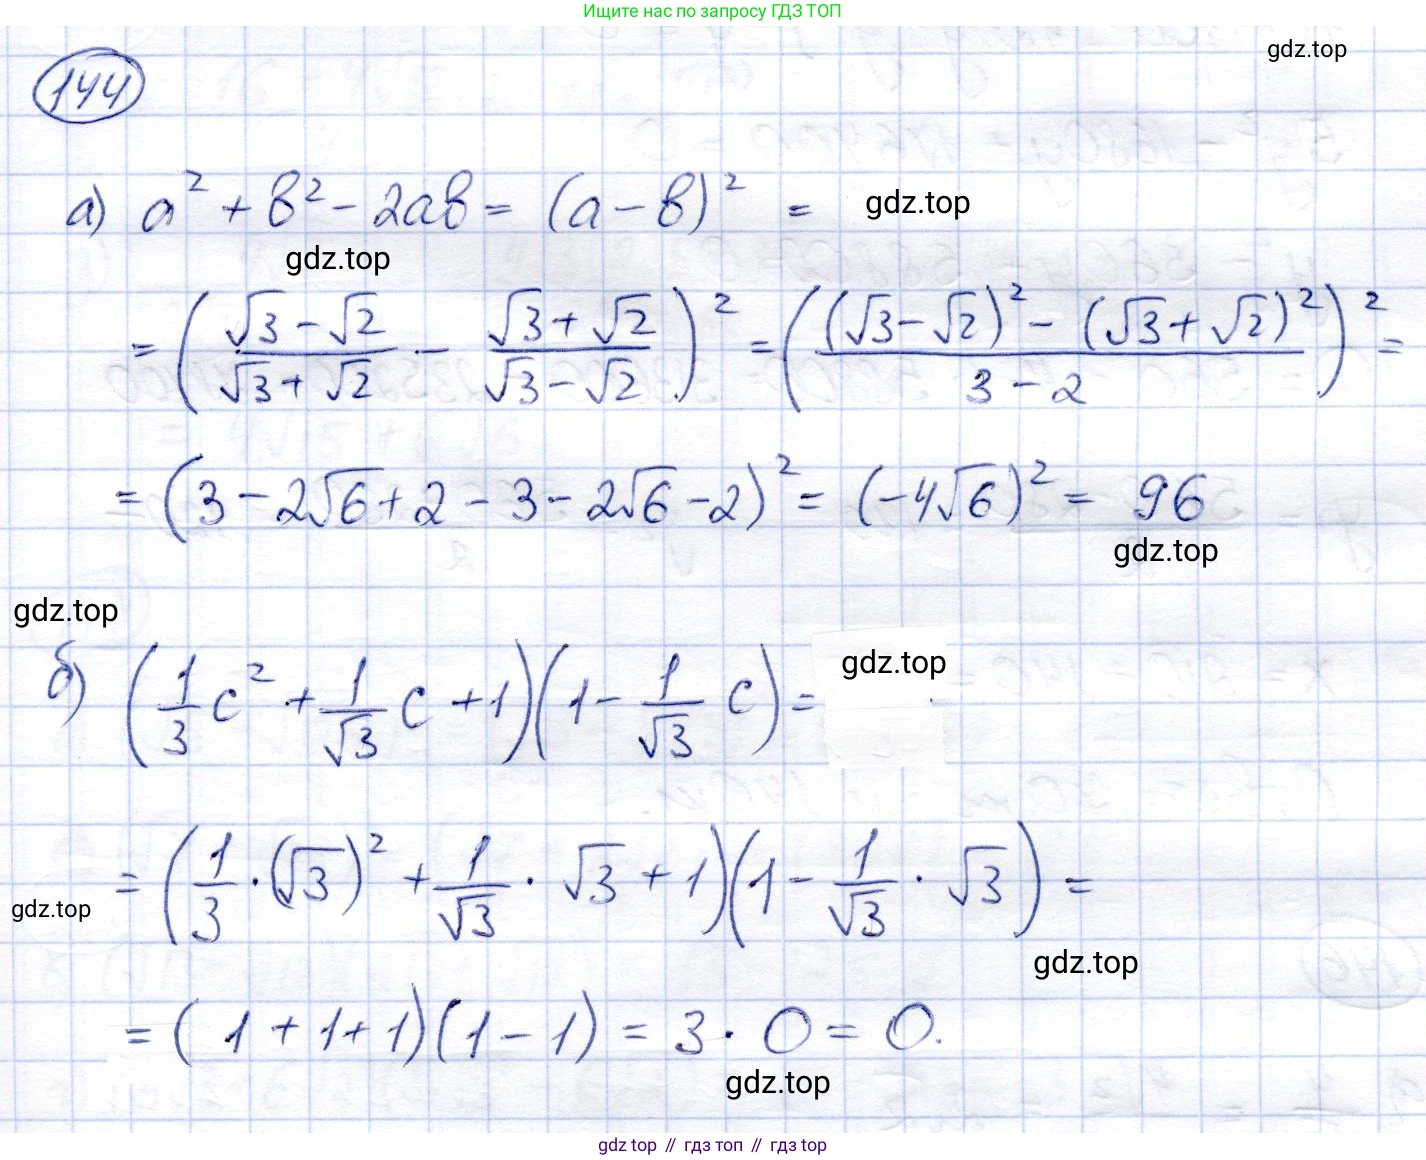 Ищите нас по запросу ГДЗ ТОП
gdz.top
144
а) a² + b² - 2ab = (a - b)² =
gdz.top
gdz.top
= ((√3 - √2)/(√3 + √2) - (√3 + √2)/(√3 - √2))² = (((√3 - √2)² - (√3 + √2)²)/(3 - 2))² =
= (3 - 2√6 + 2 - 3 - 2√6 - 2)² = (-4√6)² = 96
gdz.top
gdz.top
б) (1/3 c² + 1/√3 c + 1)(1 - 1/√3 c) =
gdz.top
= (1/3 · (√3)² + 1/√3 · √3 + 1)(1 - 1/√3 · √3) =
gdz.top
gdz.top
= (1 + 1 + 1)(1 - 1) = 3 · 0 = 0.
gdz.top
gdz top // гдз топ // gdz top